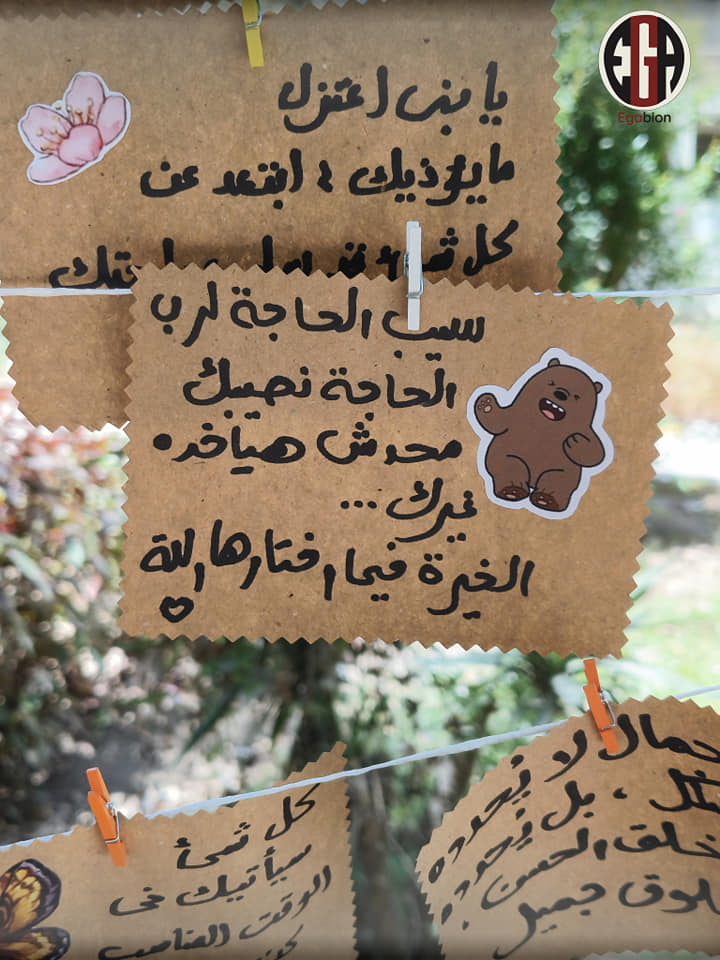 EGA
Egabion
يا بنى اعتزل
ما يؤذيك ، ابتعد عن
كل شئ
سيب الحاجة لرب
الحاجة نصيبك
محدش هياخده
غيرك ...
الخيرة فيما اختارها الله
كل شئ
سيأتيك فى
الوقت المناسب
لا يُحدده
، بل يُحدده
خلق الحسن
جميل